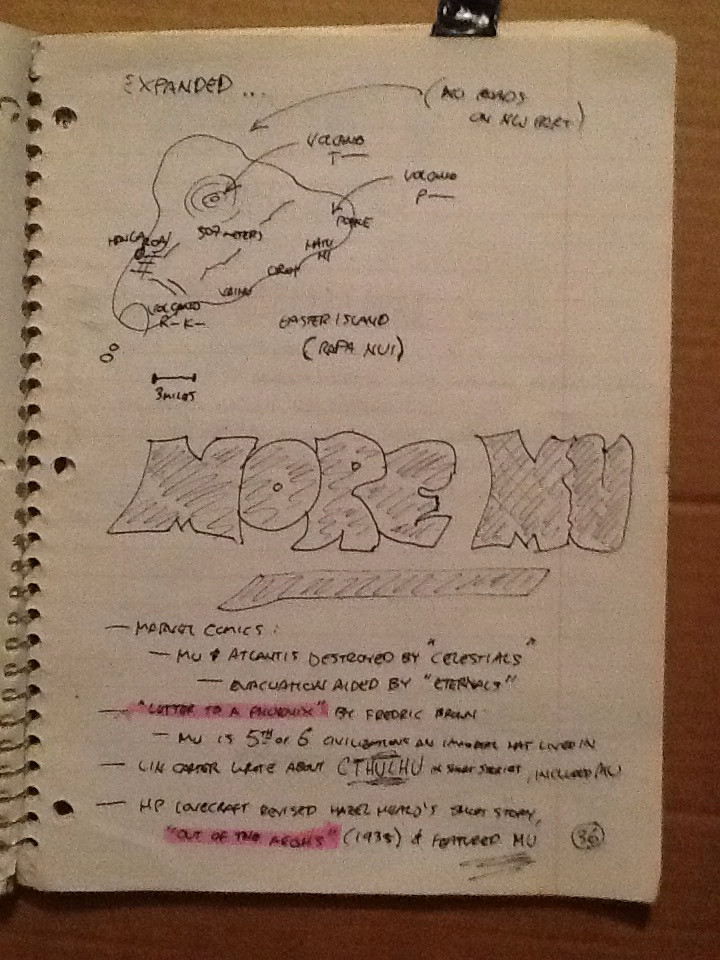 EXPANDED ...
(NO ROADS
ON NW PART)
VOLCANO
T—
VOLCANO
P—
507 METERS
POIKE
HANGA ROA
HATU
HI
OROI
VAIHU
VOLCANO
R- K-
EASTER ISLAND
(RAPA NUI)
3 MILES
MORE MU
— MARVEL COMICS :
— MU & ATLANTIS DESTROYED BY "CELESTIALS"
— EVACUATION AIDED BY "ETERNALS"
— "LETTER TO A PHOENIX" BY FREDRIC BROWN
— MU IS 5TH OF 6 CIVILIZATIONS AN IMMORTAL HAS LIVED IN
— LIN CARTER WROTE ABOUT CTHULHU IN SHORT STORIES, INCLUDED MU
— HP LOVECRAFT REVISED HAZEL HEALD'S SHORT STORY,
"OUT OF THE AEONS" (1935) & FEATURED MU
36